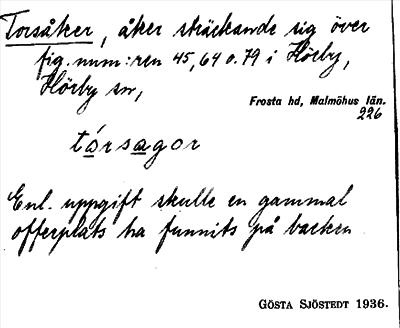 Torsåker, åker sträckande sig över
fig.num:ren 45, 64 o. 79 i Hörby,
Hörby sn,
Frosta hd, Malmöhus län.
226
tórsagor
Enl. uppgift skulle en gammal
offerplats ha funnits på backen
GÖSTA SJÖSTEDT 1936.